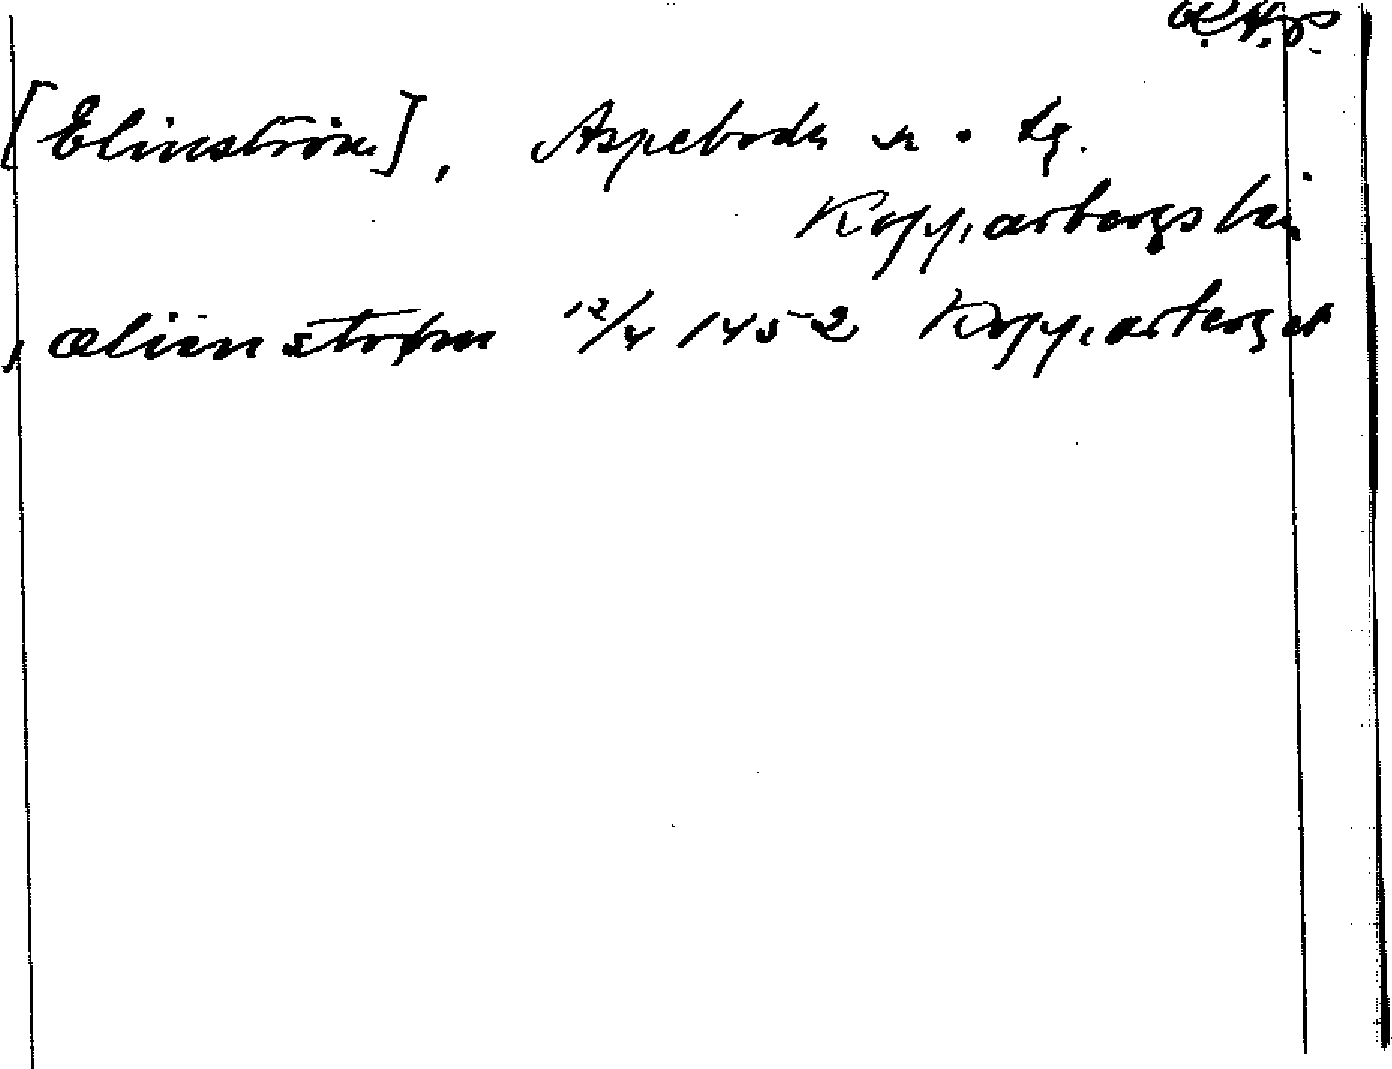 [Elinström], Aspeboda sn. Kopparbergs län
ælienstrøm 12/4 1452 Kopparberget